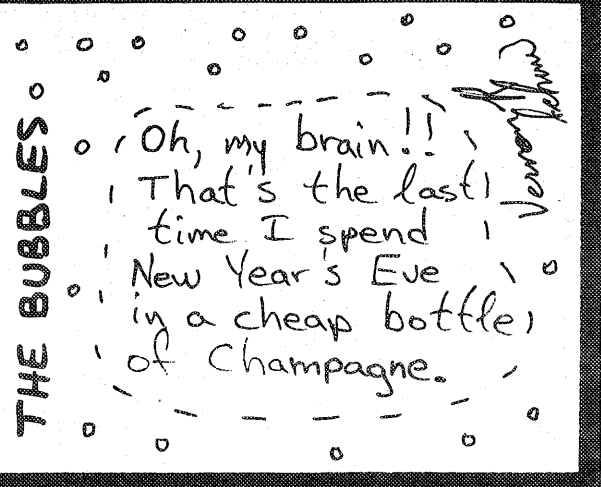 THE BUBBLES
Oh, my brain!!
That's the last
time I spend
New Year's Eve
in a cheap bottle
of Champagne.